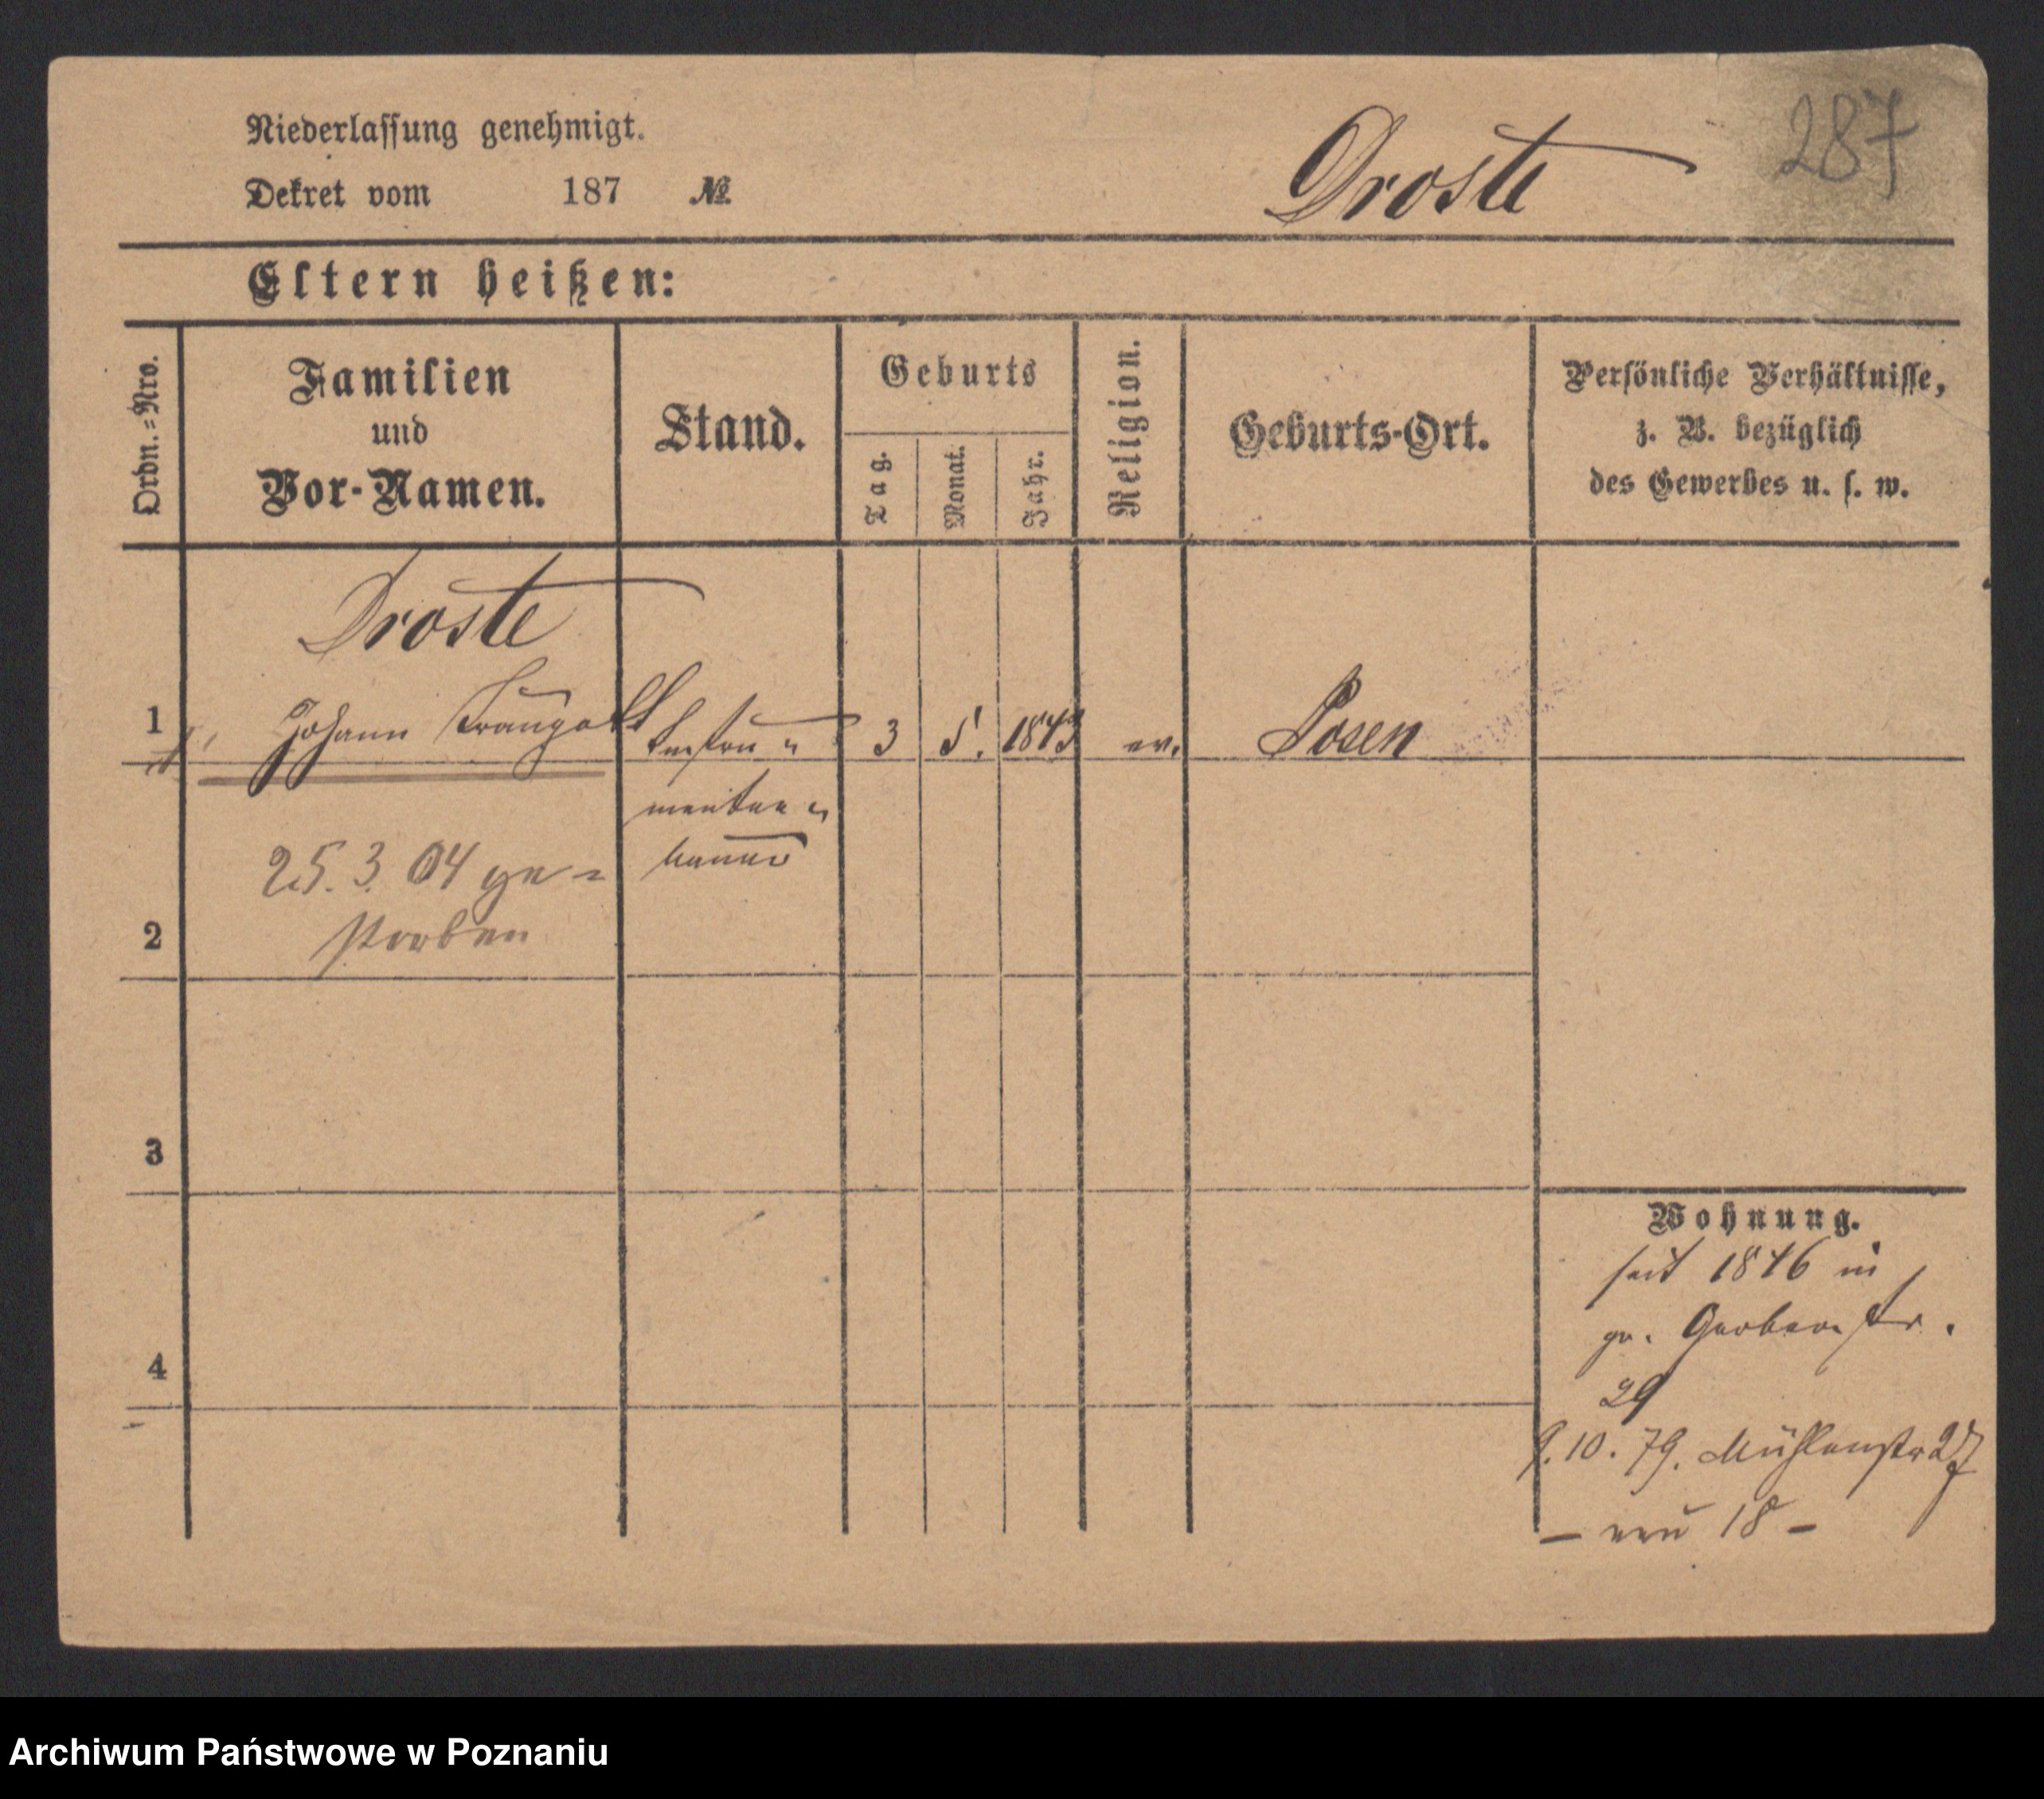 287
Niederlassung genehmigt.
Droste
Dekret vom 187 №
Eltern heißen:
Ordn.=Nro.
Familien
und
Vor-Namen.
Stand.
Geburts
Tag.
Monat.
Jahr.
Religion.
Geburts-Ort.
Persönliche Verhältnisse,
z. B. bezüglich
des Gewerbes u. s. w.
Droste
1 Johann Traugott Instru- 3 5. 1843 ev. Posen
menten-
bauer
25. 3. 04 ge-
storben
2
3
4
Wohnung.
seit 1846 in
gr. Gerberstr.
29
9. 10. 79. Mühlenstr 27
- neu 18 -
Archiwum Państwowe w Poznaniu